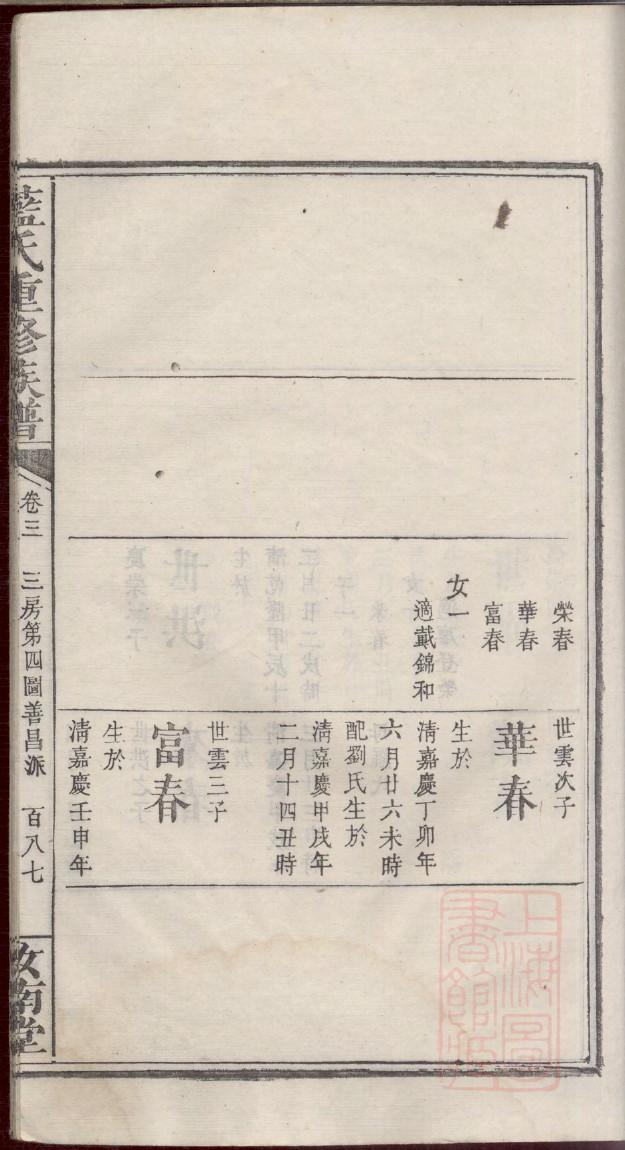 榮春
華春
富春
女一
適戴錦和
世雲次子
華春
生於
淸嘉慶丁卯年
六月廿六未時
配劉氏生於
淸嘉慶甲戌年
二月十四丑時
世雲三子
富春
生於
淸嘉慶壬申年
藍氏重修族譜
卷三
三房第四圖善昌派
百八七
汝南堂
上海圖書館藏